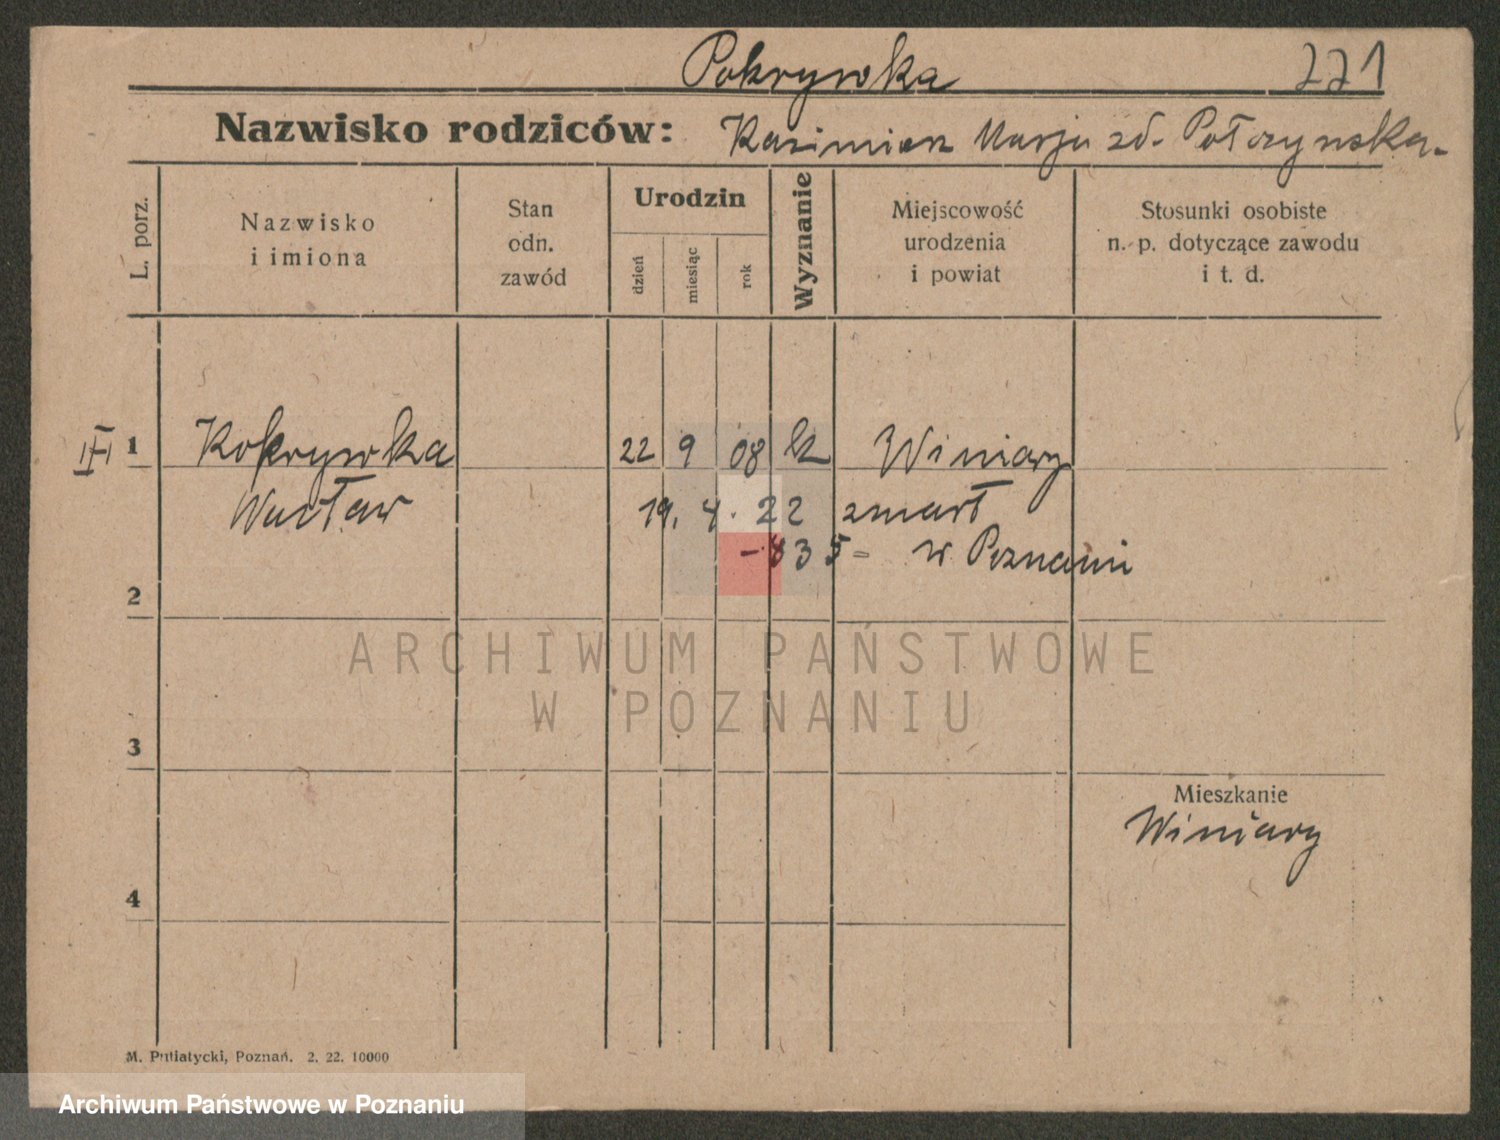 Pokrywka 221
Nazwisko rodziców: Kazimierz Marja zd. Połczynska.
L. porz.
Nazwisko
i imiona
Stan
odn.
zawód
Urodzin
dzień
miesiąc
rok
Wyznanie
Miejscowość
urodzenia
i powiat
Stosunki osobiste
n. p. dotyczące zawodu
i t. d.
III 1 Pokrywka 22 9 08 k Winiary
Wacław 19. 4. 22 zmarł
w Poznaniu
2
ARCHIWUM PAŃSTWOWE
W POZNANIU
3
Mieszkanie
Winiary
4
M. Putiatycki, Poznań. 2. 22. 10000
Archiwum Państwowe w Poznaniu